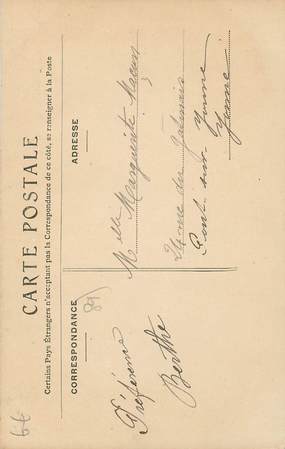 CARTE POSTALE
Certains Pays Étrangers n'acceptant pas la Correspondance de ce côté, se renseigner à la Poste
CORRESPONDANCE
ADRESSE
(89)
Préférence
Berthe
Melle Marguerite
24 rue des
Pont sur Yonne
Yonne
6€